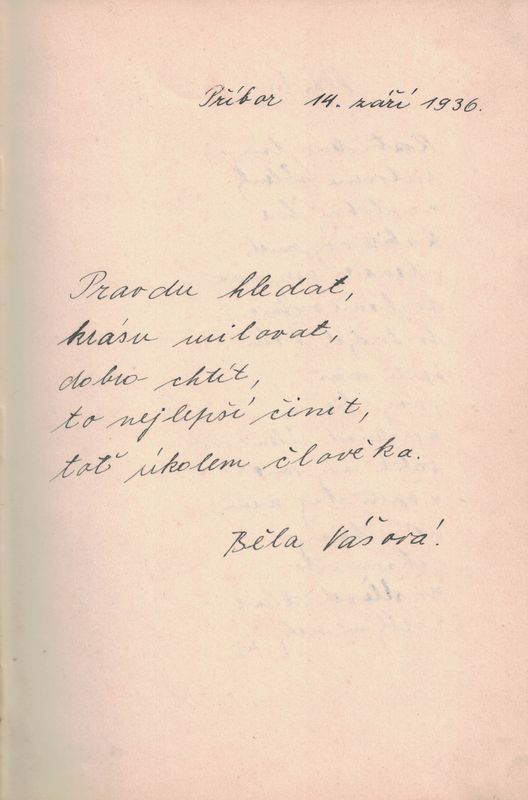 Příbor 14. září 1936.
Pravdu hledat,
krásu milovat,
dobro chtít,
to nejlepší činit,
toť úkolem člověka.
Běla Vášová!